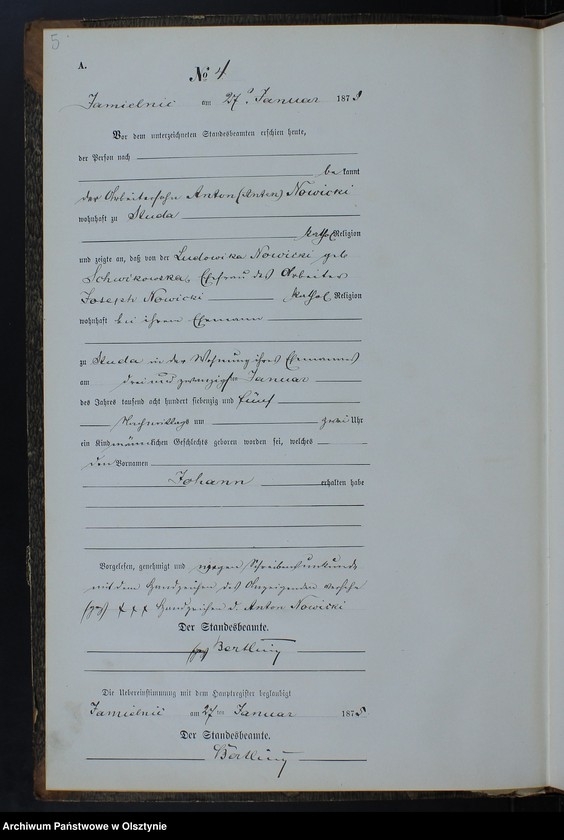 5
A.
No 4
Jamielnic am 27t Januar 1875
Vor dem unterzeichneten Standesbeamten erschien heute,
der Person nach
bekannt
der Arbeitersohn Anton (Anton) Nowicki
wohnhaft zu Studa
kathol Religion
und zeigte an, daß von der Ludowika Nowicki geb
Ehefrau des Arbeiter
Joseph Nowicki kathol Religion
wohnhaft bei ihrem Ehemann
zu Studa in der Wohnung ihres Ehemannes
am drei und zwanzigsten Januar
des Jahres tausend acht hundert siebenzig und fünf
Nachmittags um zwei Uhr
ein Kind männlichen Geschlechts geboren worden sei, welches
den Vornamen
Johann erhalten habe
Vorgelesen, genehmigt und wegen Schreibensunkunde
mit dem Handzeichen des Anzeigenden versehen
(gez) +++ Handzeichen d. Anton Nowicki
Der Standesbeamte.
gez Bertling
Die Uebereinstimmung mit dem Hauptregister beglaubigt
Jamielnic am 27ten Januar 1875
Der Standesbeamte.
Bertling
Archiwum Państwowe w Olsztynie